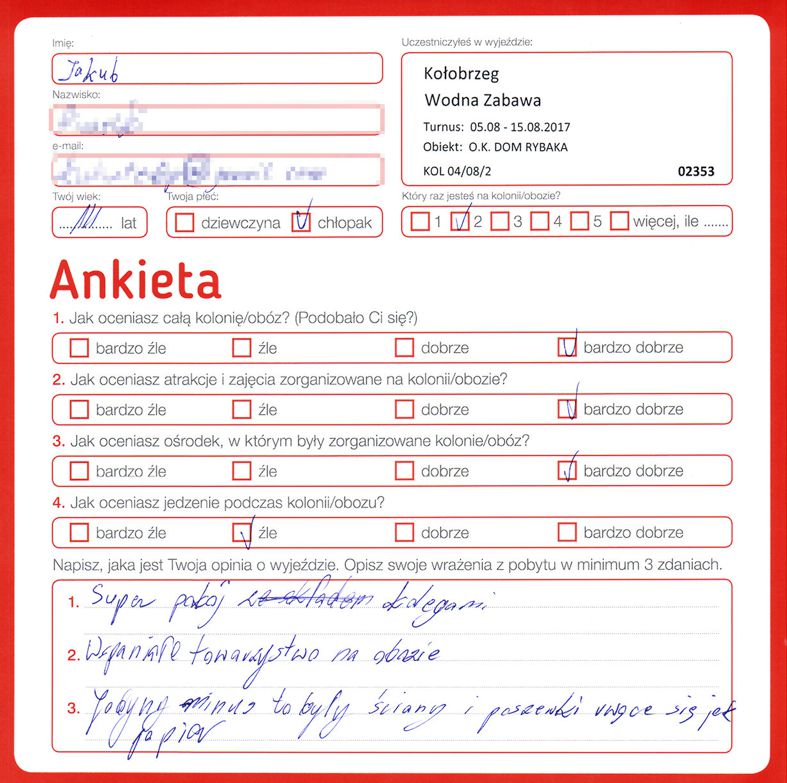 Imię:
Jakub
Nazwisko:
e-mail:
Twój wiek:
Twoja płeć:
lat
dziewczyna
chłopak
Uczestniczyłeś w wyjeździe:
Kołobrzeg
Wodna Zabawa
Turnus: 05.08 - 15.08.2017
Obiekt: O.K. DOM RYBAKA
KOL 04/08/2 02353
Który raz jesteś na kolonii/obozie?
1 2 3 4 5 więcej, ile .......
Ankieta
1. Jak oceniasz całą kolonię/obóz? (Podobało Ci się?)
bardzo źle źle dobrze bardzo dobrze
2. Jak oceniasz atrakcje i zajęcia zorganizowane na kolonii/obozie?
bardzo źle źle dobrze bardzo dobrze
3. Jak oceniasz ośrodek, w którym były zorganizowane kolonie/obóz?
bardzo źle źle dobrze bardzo dobrze
4. Jak oceniasz jedzenie podczas kolonii/obozu?
bardzo źle źle dobrze bardzo dobrze
Napisz, jaka jest Twoja opinia o wyjeździe. Opisz swoje wrażenia z pobytu w minimum 3 zdaniach.
1. Super pokój kolegami
2. Wspaniałe towarzystwo na obozie
3. Jedyny minus to były ściany i poszewki rwące się jak
papier